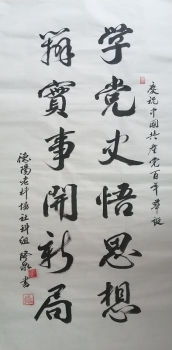 慶祝中國共産党百年華誕
学党史悟思想
辦實事開新局
德陽老科協社科組隆泉書